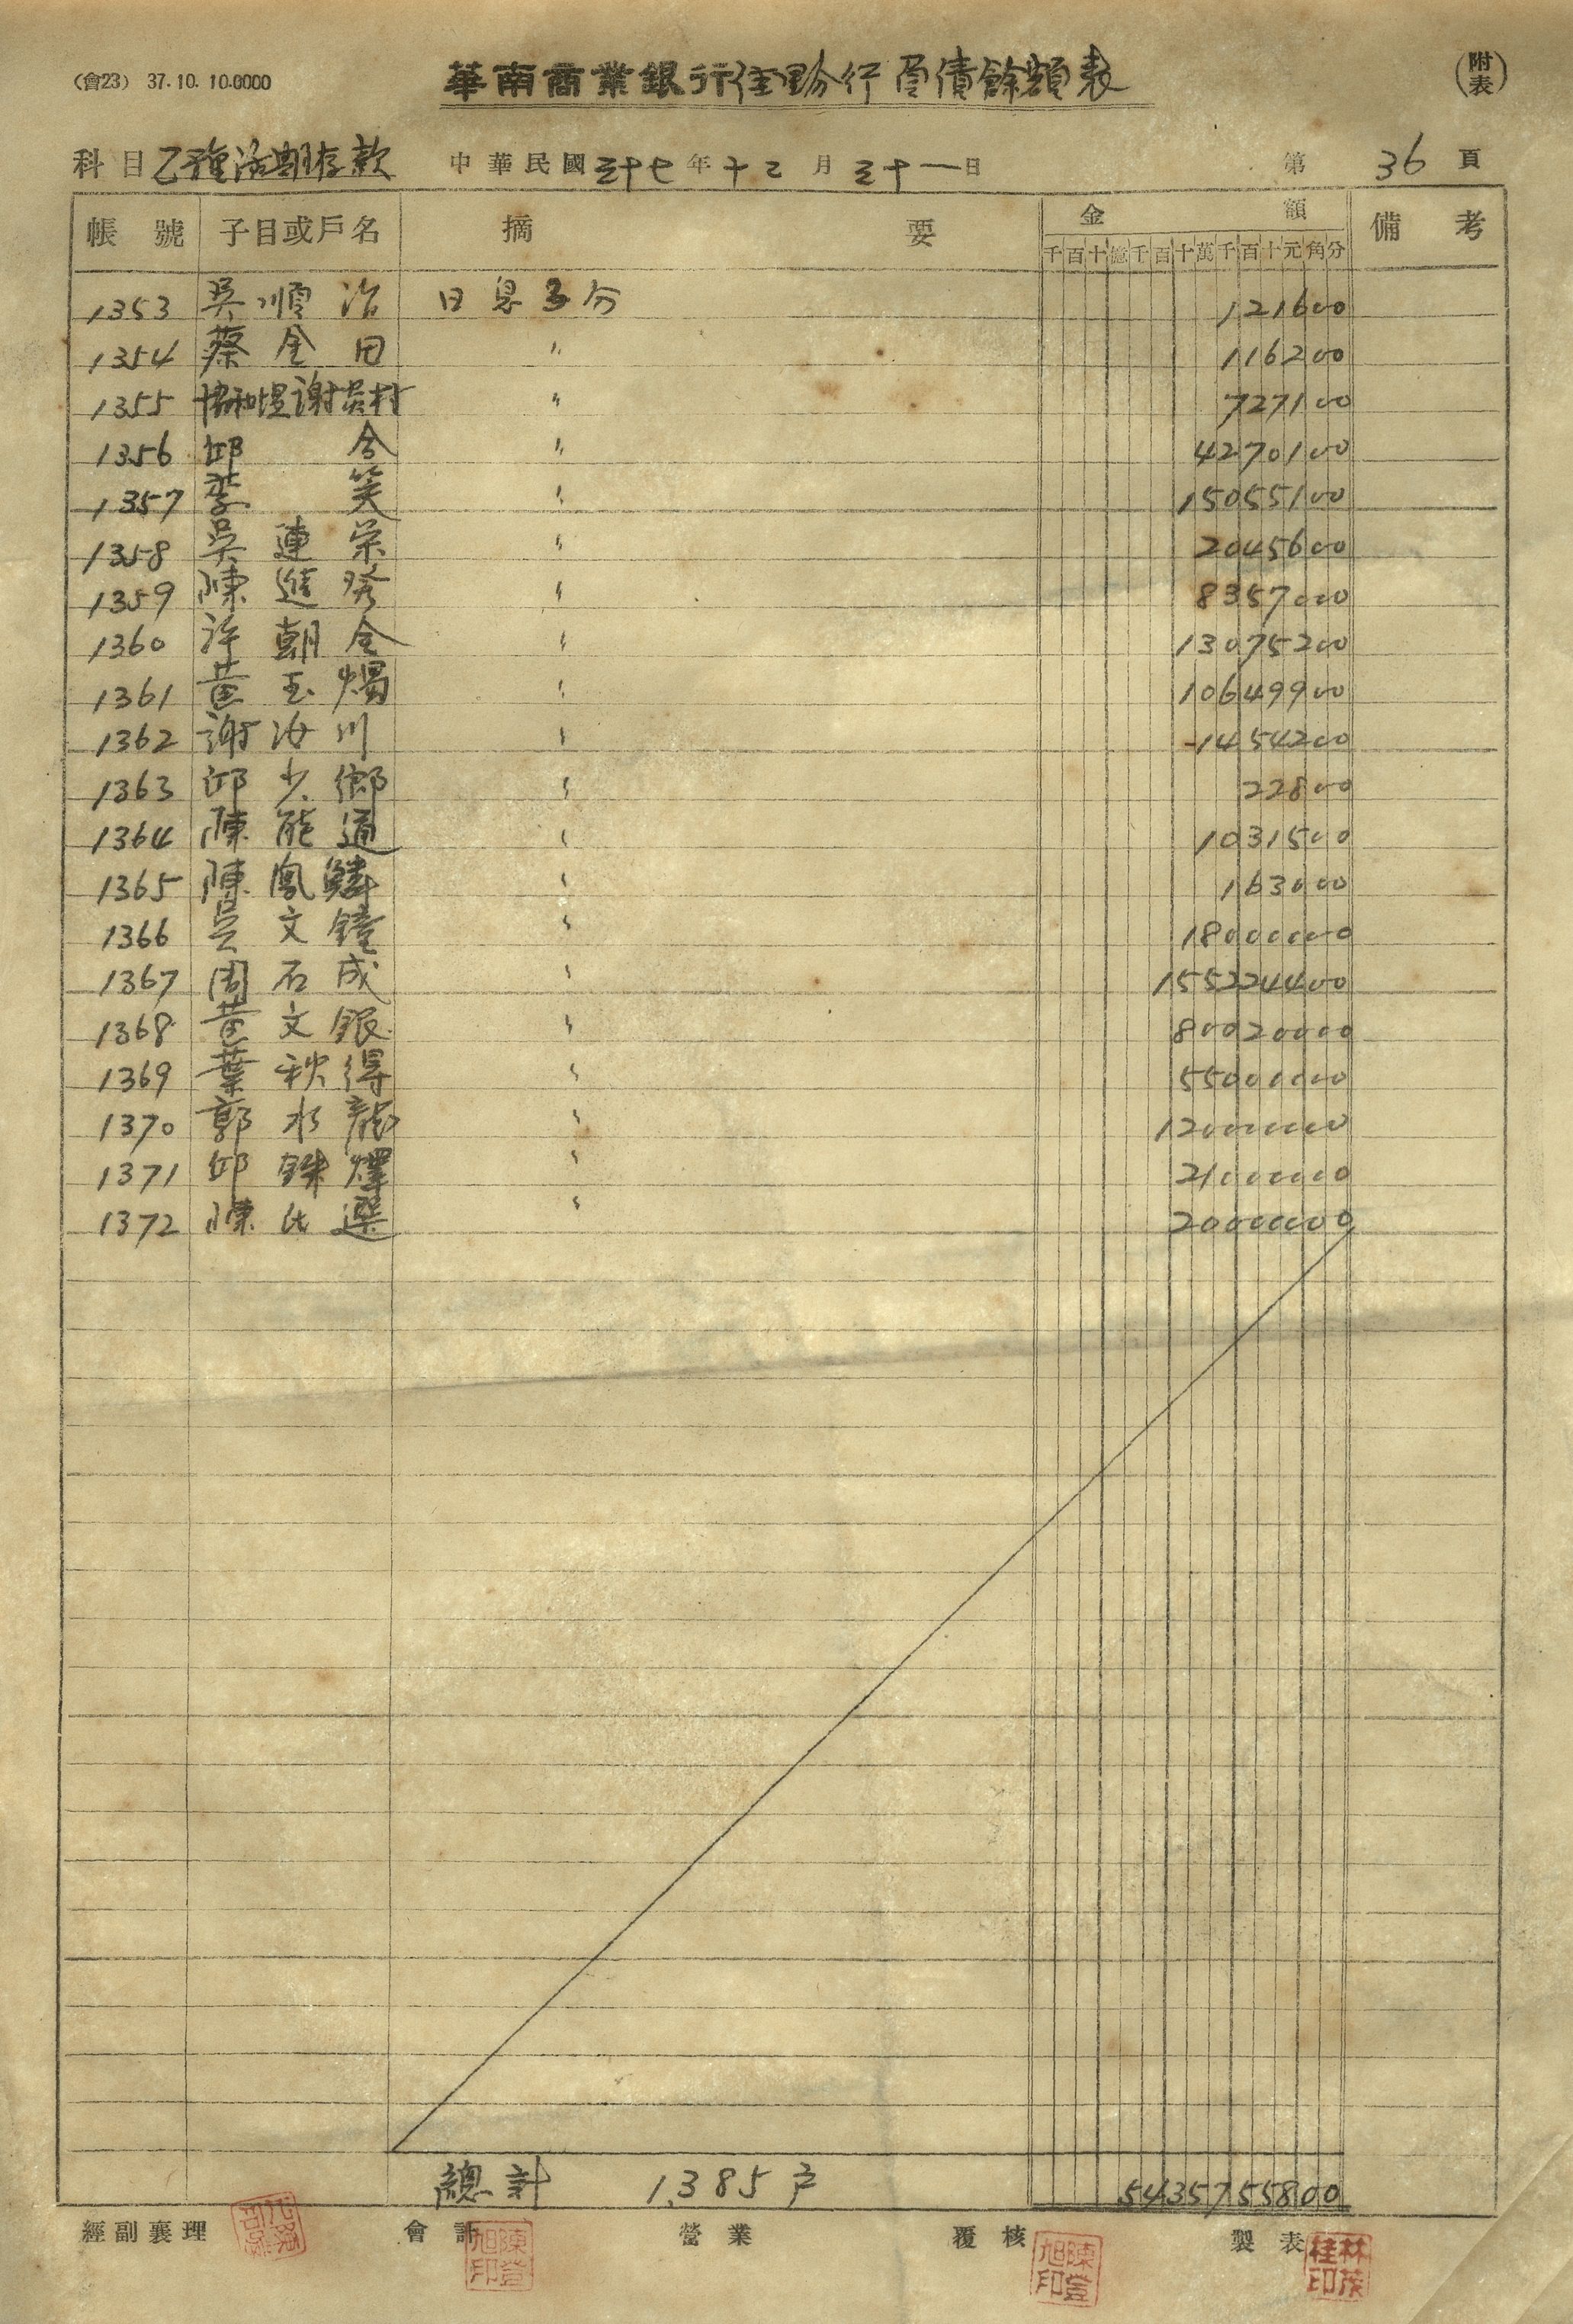 (會23) 37.10.10.0000
華南商業銀行 行負債餘額表
(附表)
科目 乙種活期存款 中華民國三十七年十二月三十一日 第36頁
帳號 子目或戶名 摘要 金額 備考
千百十億千百十萬千百十元角分
1353 吳順治 日息3分 121600
1354 蔡金田 〃 116200
1355 〃 727100
1356 邱 〃 4270100
1357 李笑 〃 15055100
1358 吳連宗 〃 2045600
1359 陳進發 〃 8357000
1360 許朝全 〃 13075200
1361 黃玉煬 〃 10649900
1362 謝汝川 〃 1454200
1363 邱少鄉 〃 22800
1364 陳能通 〃 1031500
1365 陳鳳鱗 〃 163000
1366 吳文鐘 〃 18000000
1367 周石成 〃 155224400
1368 黃文銀 〃 80020000
1369 葉秋得 〃 55000000
1370 郭水龍 〃 120000000
1371 邱銖燡 〃 21000000
1372 陳比選 〃 20000000
總計 1,385戶 5435755800
經副襄理 會計 營業 覆核 製表
陳登旭印 陳登旭印 林茂桂印